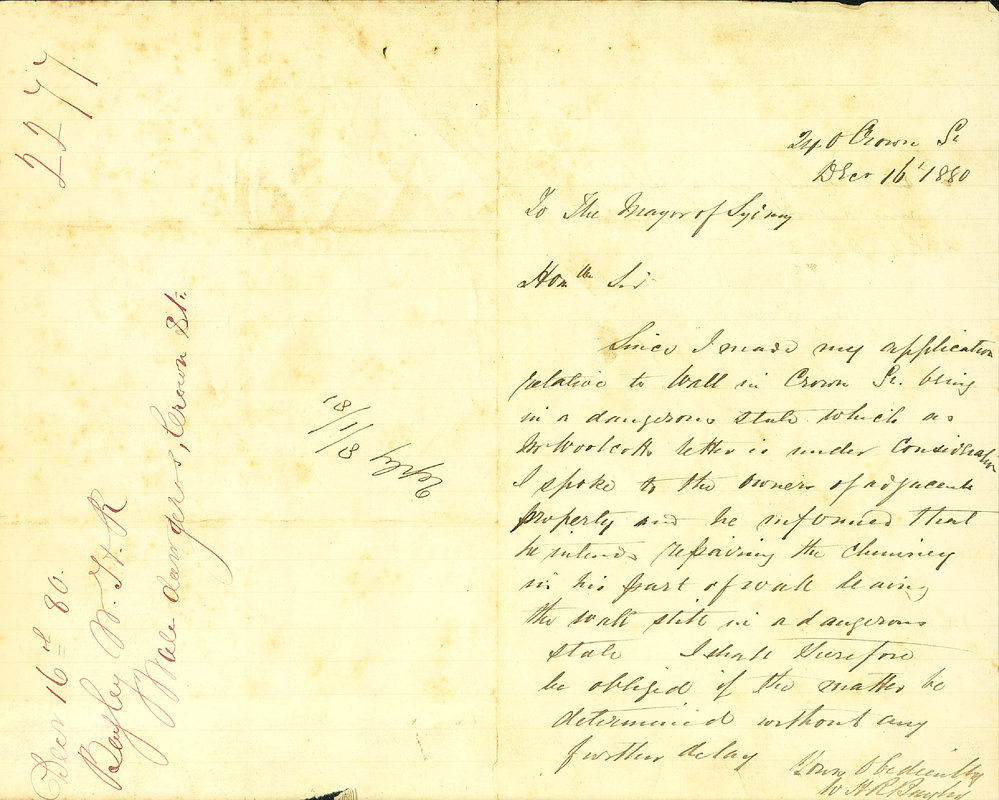 2277
Decr 16th 80.
Bayley W. H. R
Wall dangerous, Crown St.
Reply
8/1/81
240 Crown St
Decr 16' 1880
To The Mayor of Sydney
Honble Sir
Since I made my application
relative to Wall in Crown St. being
in a dangerous state which as
Mr Woolcotts letter is under Consideration
I spoke to the owner of adjacent
property and he informed that
he intends repairing the chimney
in his part of wall leaving
the wall still in a dangerous
state I shall therefore
be obliged if the matter be
determined without any
further delay
Yours Obediently
W H R Bayley